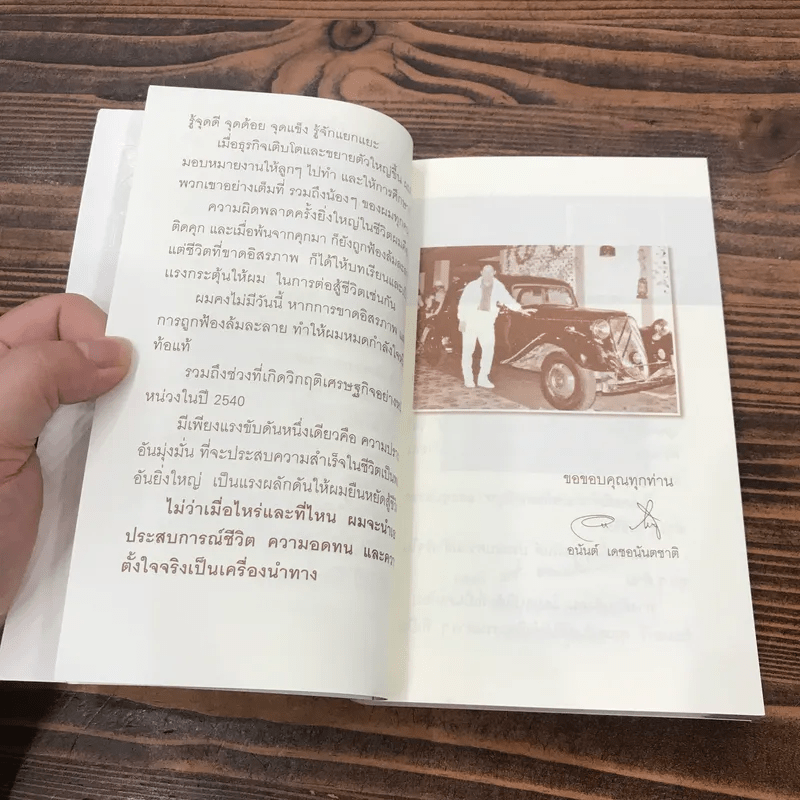 รู้จุดดี จุดด้อย จุดแข็ง รู้จักแยกแยะ
เมื่อธุรกิจเติบโตและขยายตัวใหญ่ขึ้น
มอบหมายงานให้ลูกๆ ไปทำ และให้การศึกษา
พวกเขาอย่างเต็มที่ รวมถึงน้องๆ ของผมทุกคน
ความผิดพลาดครั้งยิ่งใหญ่ในชีวิตผมคือ
ติดคุก และเมื่อพ้นจากคุกมา ก็ยังถูกฟ้องล้มละลาย
แต่ชีวิตที่ขาดอิสรภาพ ก็ได้ให้บทเรียนและ
แรงกระตุ้นให้ผม ในการต่อสู้ชีวิตเช่นกัน
ผมคงไม่มีวันนี้ หากการขาดอิสรภาพ
การถูกฟ้องล้มละลาย ทำให้ผมหมดกำลังใจ
ท้อแท้
รวมถึงช่วงที่เกิดวิกฤติเศรษฐกิจอย่าง
หน่วงในปี 2540
มีเพียงแรงขับดันหนึ่งเดียวคือ ความปรา
อันมุ่งมั่น ที่จะประสบความสำเร็จในชีวิตเป็น
อันยิ่งใหญ่ เป็นแรงผลักดันให้ผมยืนหยัดสู้ชีวิ
ไม่ว่าเมื่อไหร่และที่ไหน ผมจะนำเอ
ประสบการณ์ชีวิต ความอดทน และคว
ตั้งใจจริงเป็นเครื่องนำทาง
ขอขอบคุณทุกท่าน
อนันต์ เดชอนันตชาติ